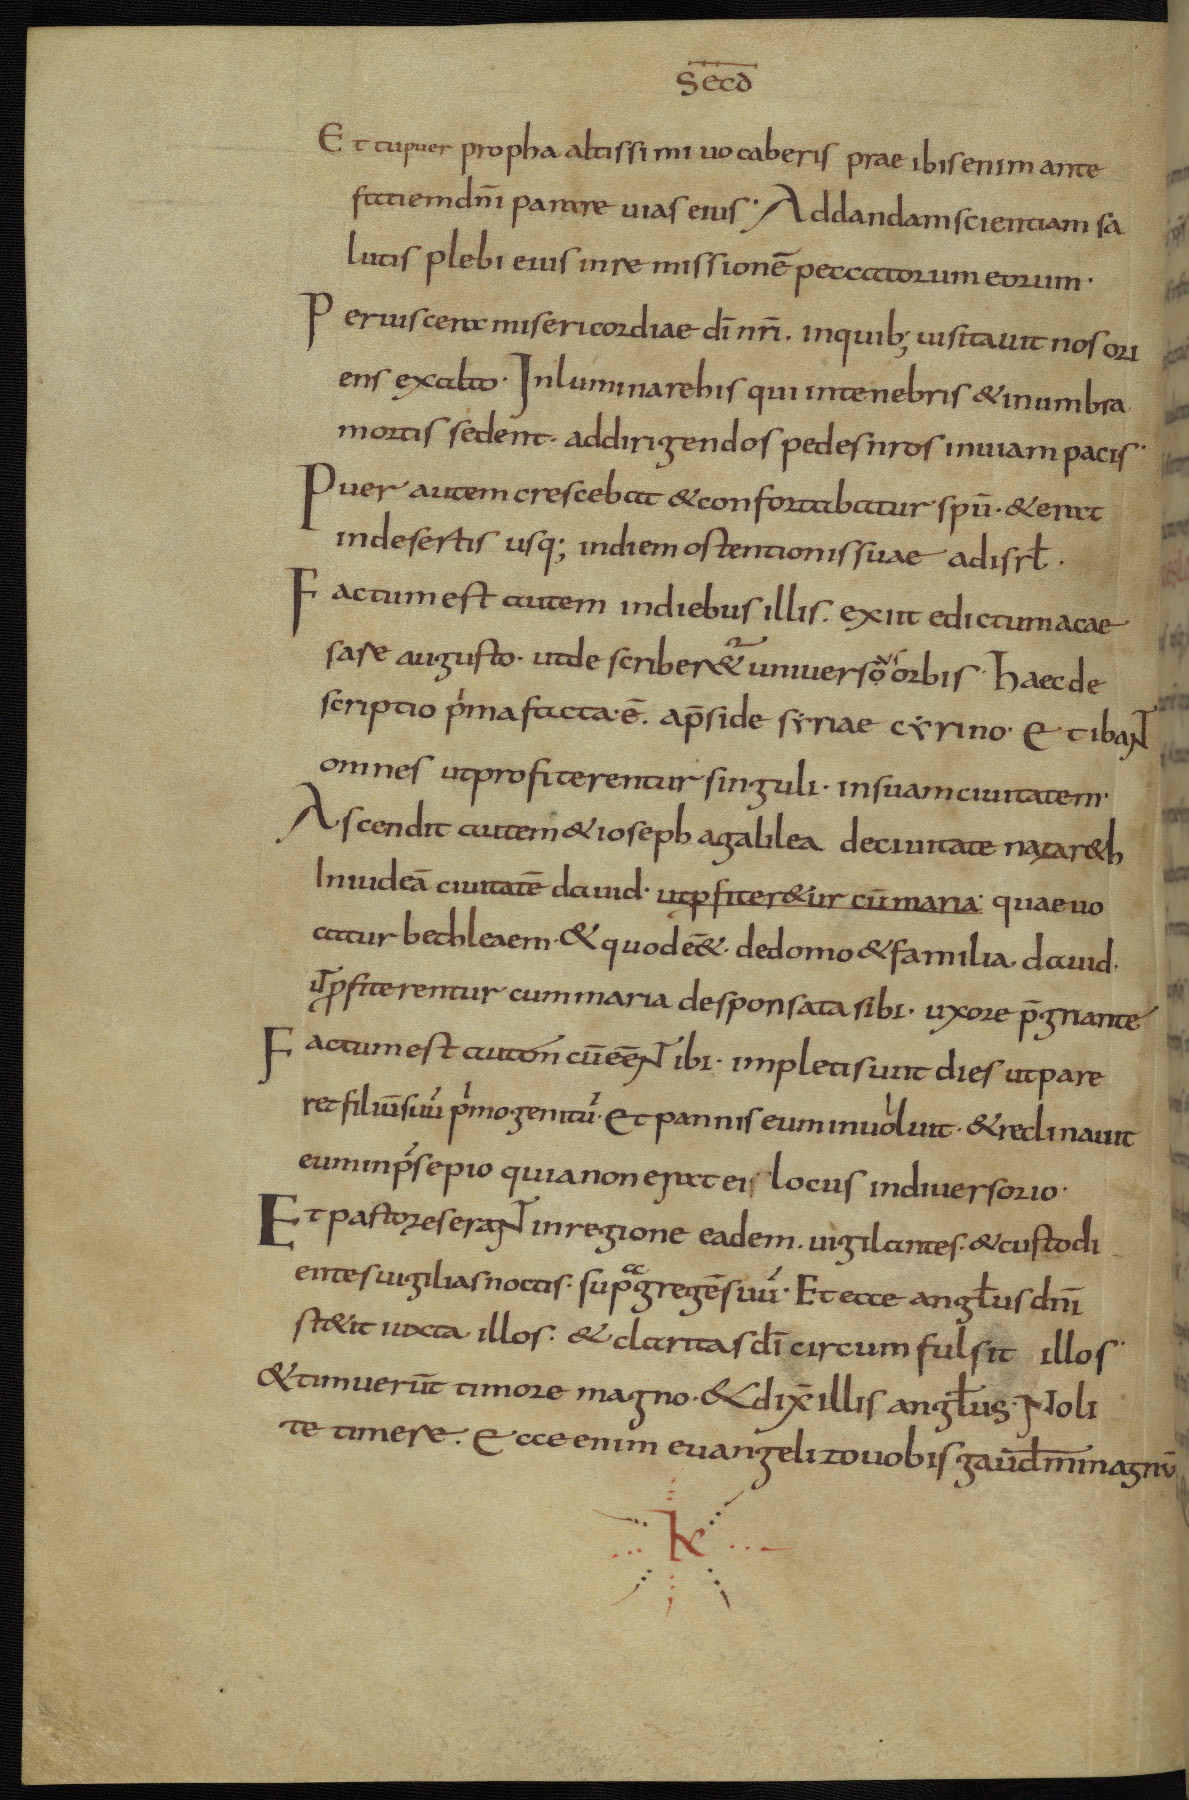 Secd̄
Et tu puer propha altissimi uocaberis prae ibis enim ante
faciem dn̄i parare uias eius· Ad dandam scientiam sa
lutis plebi eius in remissionē peccatorum eorum·
Per uiscera misericordiae dī nr̄i. in quib; uisitauit nos ori
ens ex alto· Inluminare his qui in tenebris & in umbra
mortis sedent· ad dirigendos pedes nr̄os in uiam pacis·
Puer autem crescebat & confortabatur spū· & erat
in desertis usq; in diem ostentionis suae ad isrł·
Factum est autem in diebus illis. exiit edictum a cae
sare augusto· ut describer&ur uniuersus orbis· Haec de
scriptio prima facta·ē. ap̄side syriae cyrino· Et ibant
omnes ut profiterentur singuli· in suam ciuitatem·
Ascendit autem & ioseph a galilea de ciuitate nazar&h
In iudeā ciuitatē dauid· ut ꝓfiter&ur cū maria· quae uo
catur bethleaem· & quod eē&· de domo & familia dauid·
ut ꝓfiterentur cum maria desponsata sibi· uxore p̄gnante
Factum est autem cū eēnt ibi· impleti sunt dies ut pare
ret filiū suū primogenitū· Et pannis eum inuoluit· & reclinauit
eum in p̄sepio quia non erat eis locus in diuersorio·
Et pastores erant in regione eadem. uigilantes· & custodi
entes uigilias noctis· supra gregē suū· Et ecce angłus dn̄i
st&it iuxta illos· & claritas dī circumfulsit illos·
& timuerūt timore magno· & dix̄ illis angłus· Noli
te timere. Ecce enim euangelizo uobis gaūdm̄ magnū
k